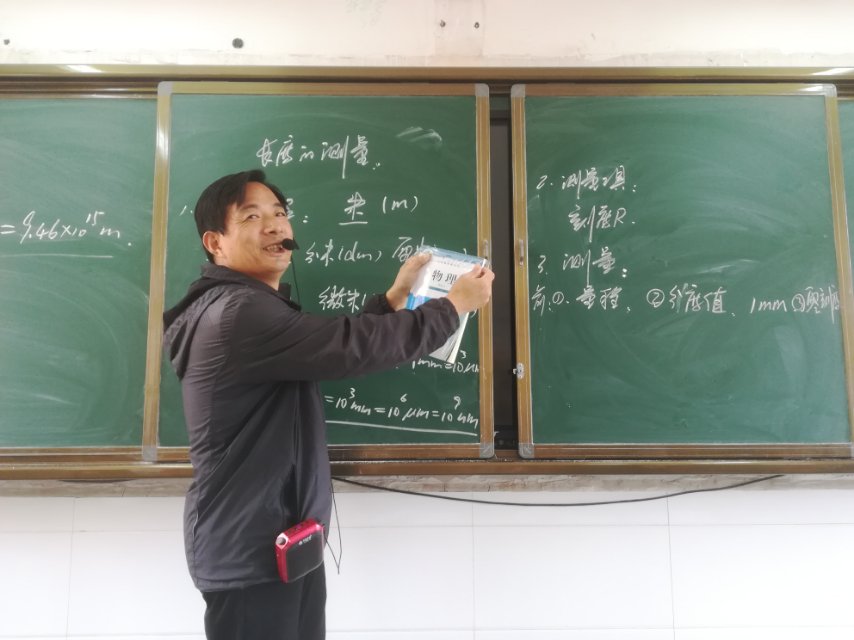 =9.46×10¹⁵m.
长度的测量.
1.
: 米(m)
分米(dm)
微米
1mm=10³μm
=10³mm=10⁶μm=10⁹nm
物理
2. 测量工具:
刻度尺.
3. 测量:
前:①. 量程、②分度值、1mm ③零刻